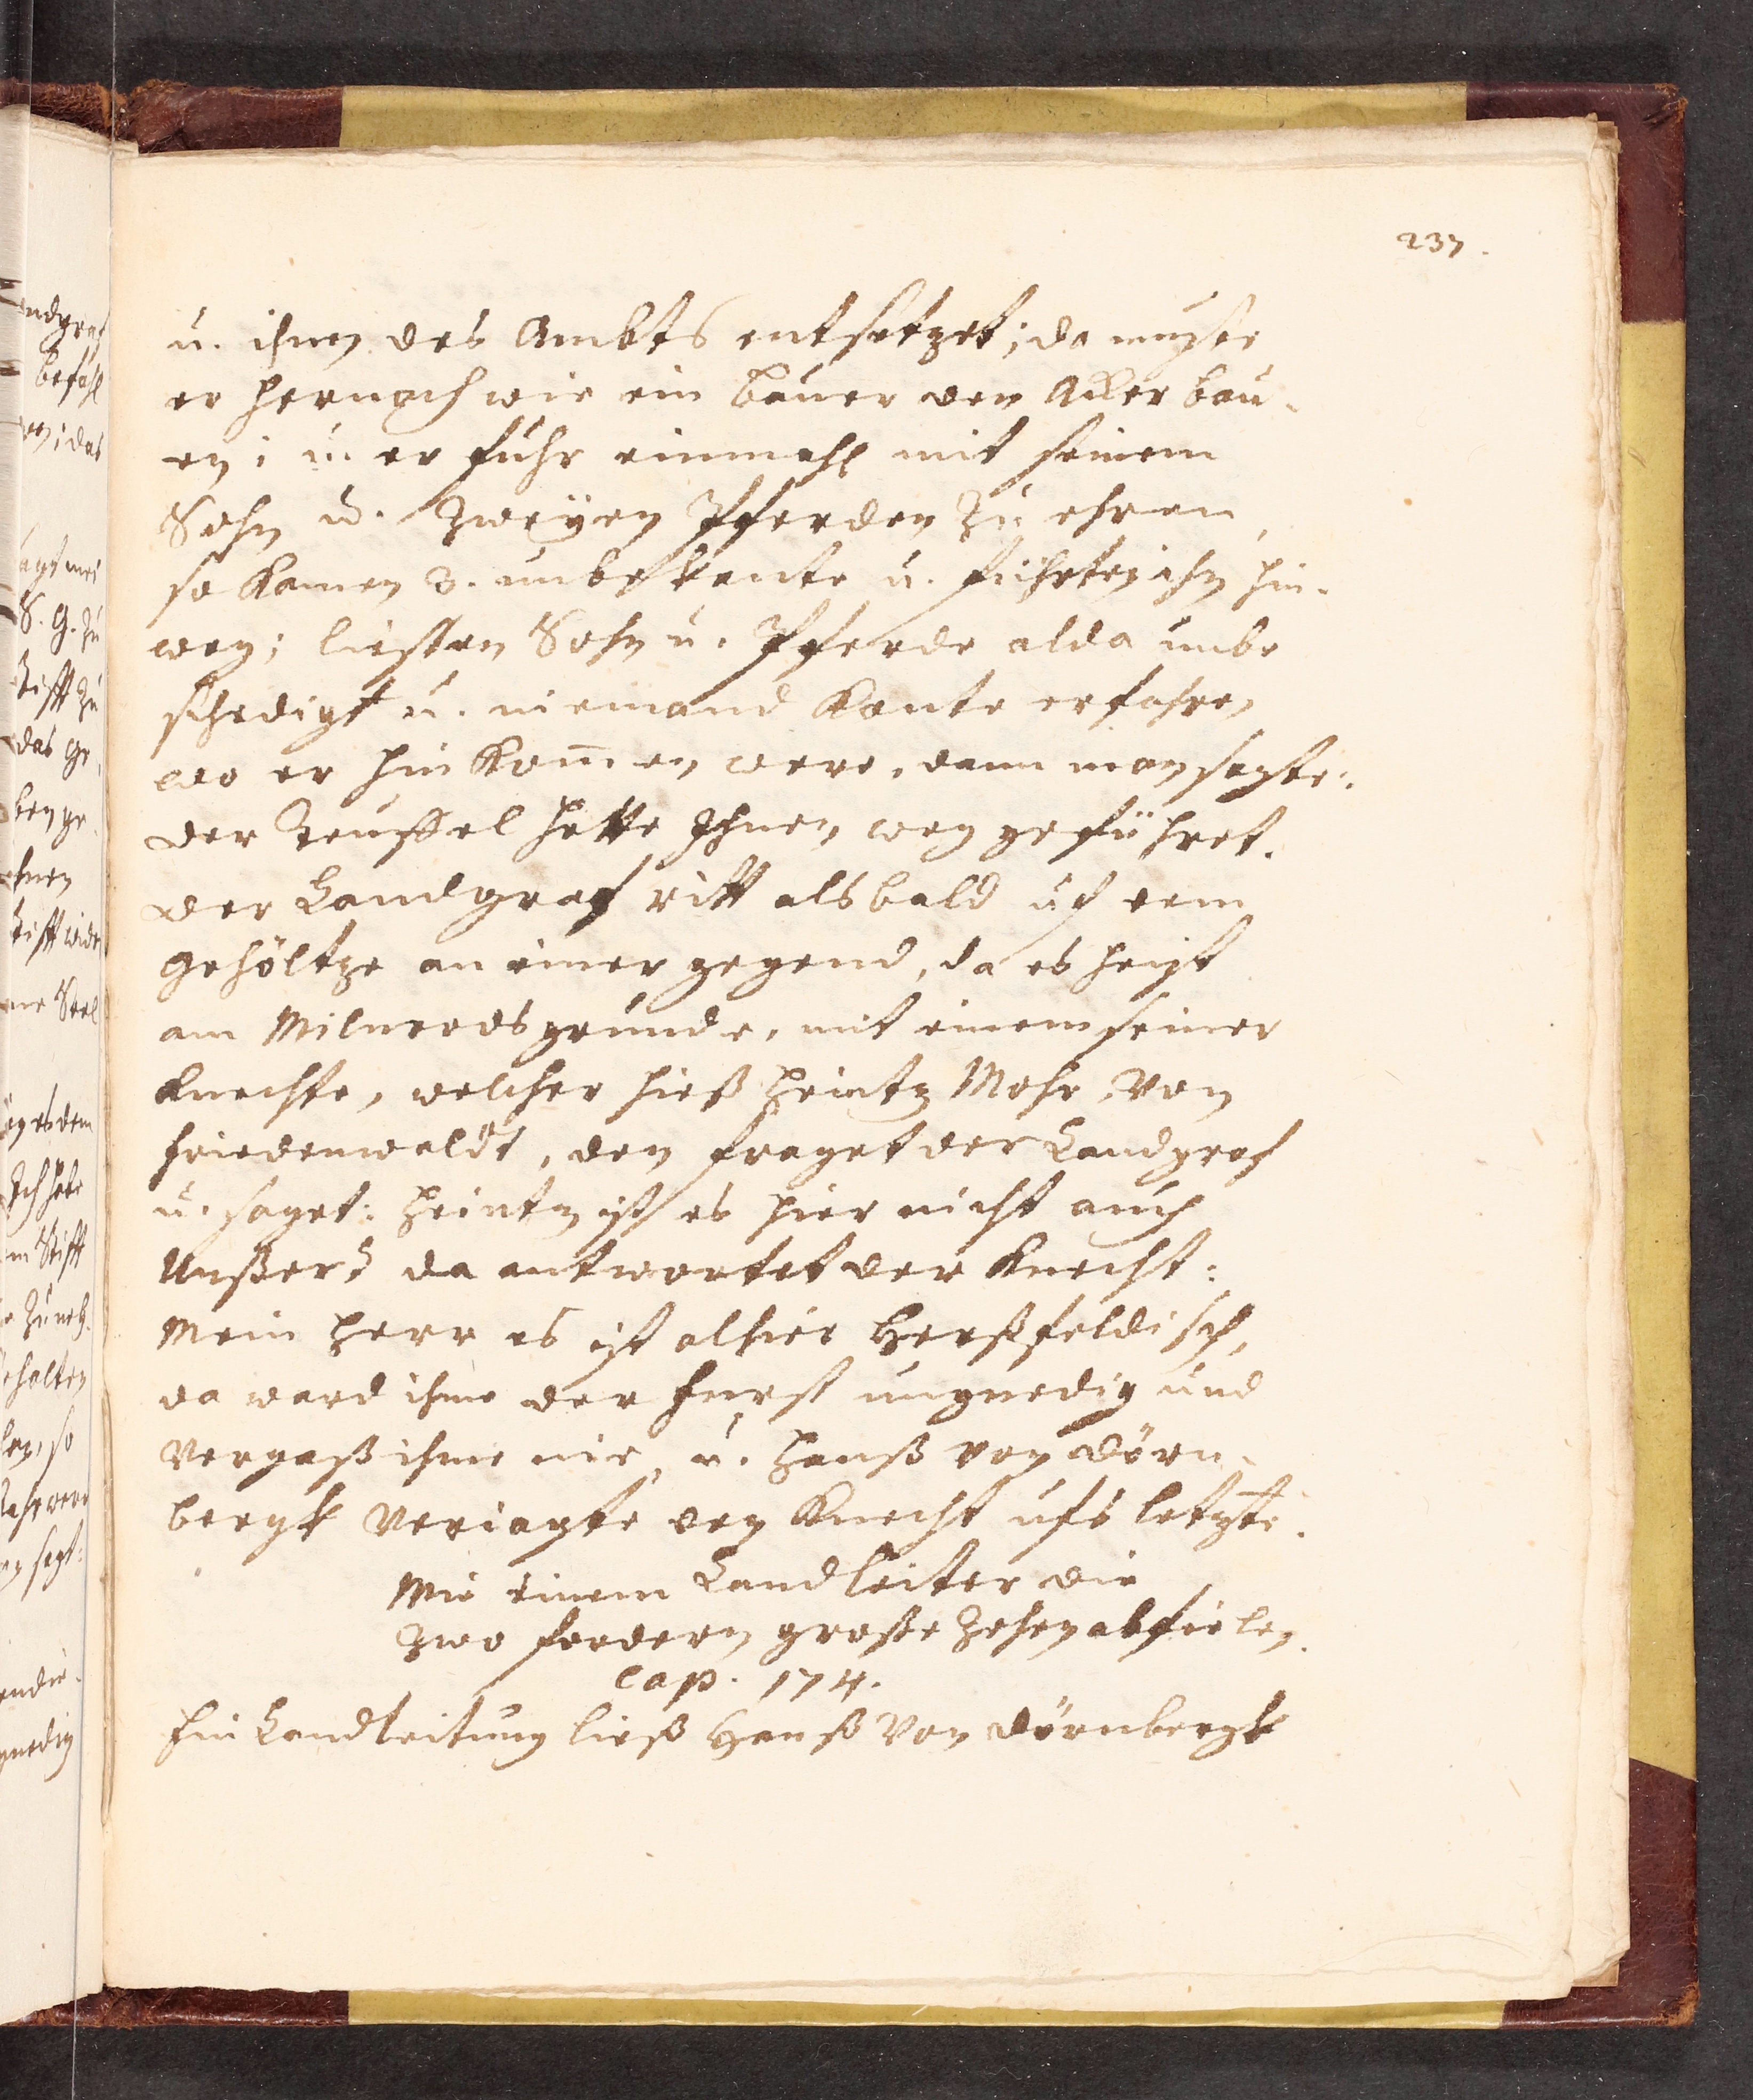 237.
u. ihnen des Ambts entsetzet; da muste
er hernach wie ein Bauer den Acker bau-
en; u. er fuhr einmahl mit seinem
Sohn u. zweÿen Pferden zu ehren,
so kamen 3. unbekante u. führten ihn hin-
weg; liessen Sohn u. Pferde alda unbe
schedigt u. niemand konte erfahren
wo er hin kom̄en were, dann man sagte:
der Teuffel hette Ihnen weg geführet.
Der Landgraf ritt alsbald uf dem
Gehöltze an einer gegend, da es heist
am Milnerdsgrunde, mit einem seiner
Knechte, welcher hieß Heintz Mohr von
Friedenwaldt, den fraget der Landgraf
u. saget: Heintz ist es hier nicht auch
Unßer? da antwortet der Knecht:
Mein Herr es ist alhier Herßfeldisch,
da ward ihme der Furst ungnedig und
vergaß ihme nie, u. Hanß von Dörn-
bergk veriagte den Knecht ufs letzte.
Wie einem Landleiter die
zwo fordern große Zehen abfielen.
Cap. 174.
Ein Landleitung ließ Hanß von Dörnbergk